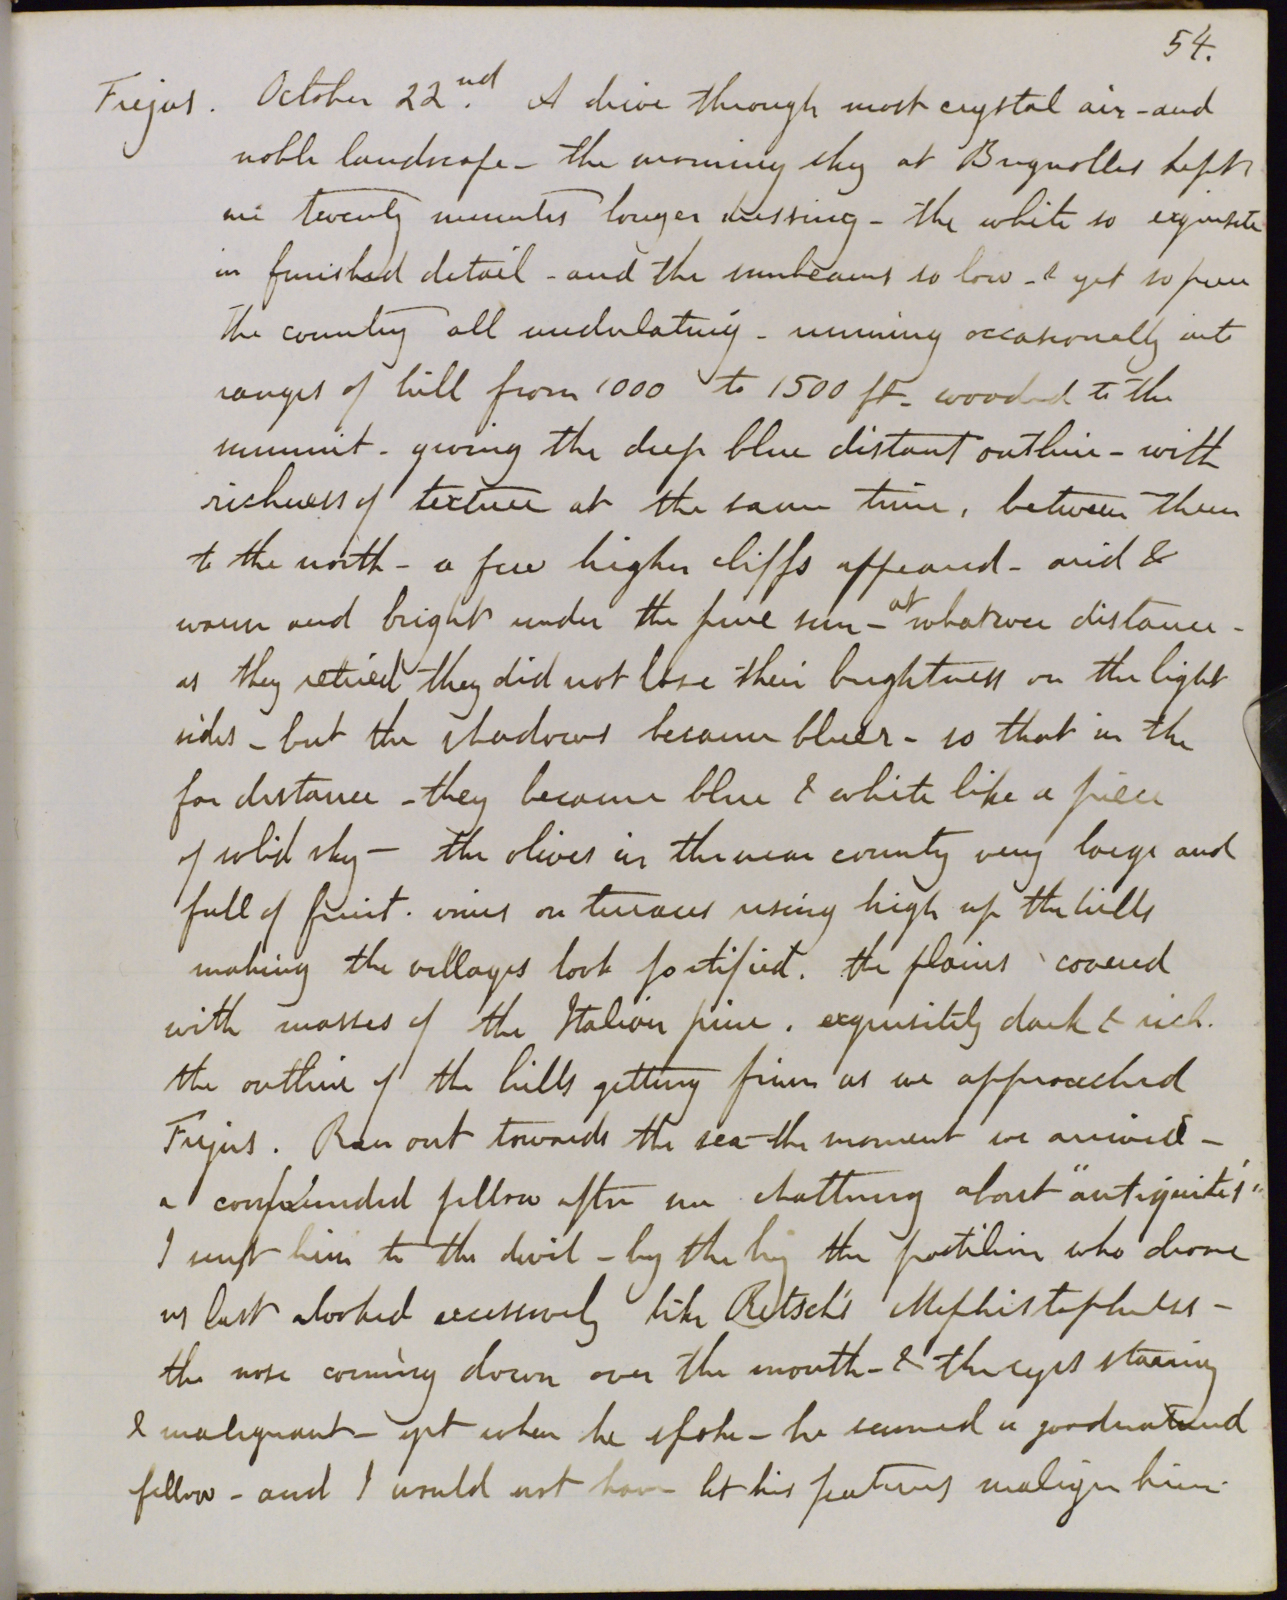 54.
Frejus. October 22nd. A drive through most crystal air - and
noble landscape - the morning sky at Brignolles kept
me twenty minutes longer dressing - the white so exquisite
in finished detail - and the sunbeams so low - & yet so pure
the country all undulating - running occasionally into
ranges of hill from 1000 to 1500 ft - wooded to the
summit - giving the deep blue distant outline - with
richness of texture at the same time, between them
to the north - a few higher cliffs appeared - arid &
warm and bright under the pure sun - at whatever distance -
as they retired they did not lose their brightness on the light
sides - but the shadows became bluer - so that in the
far distance - they became blue & white like a piece
of solid sky - the olives in the near country very large and
full of fruit. vines on terraces rising high up the hills
making the villages look fortified. the plains covered
with masses of the Italian pine. exquisitely dark & rich.
the outline of the hills getting finer as we approached
Frejus. Ran out towards the sea the moment we arrived -
a confounded fellow after me chattering about "antiquités"
I sent him to the devil - by the by the postilion who drove
us last looked excessively like Retsch's Mephistopheles -
the nose coming down over the mouth - & the eyes staring
& malignant - yet when he spoke - he seemed a goodnatured
fellow - and I would not have let his features malign him.